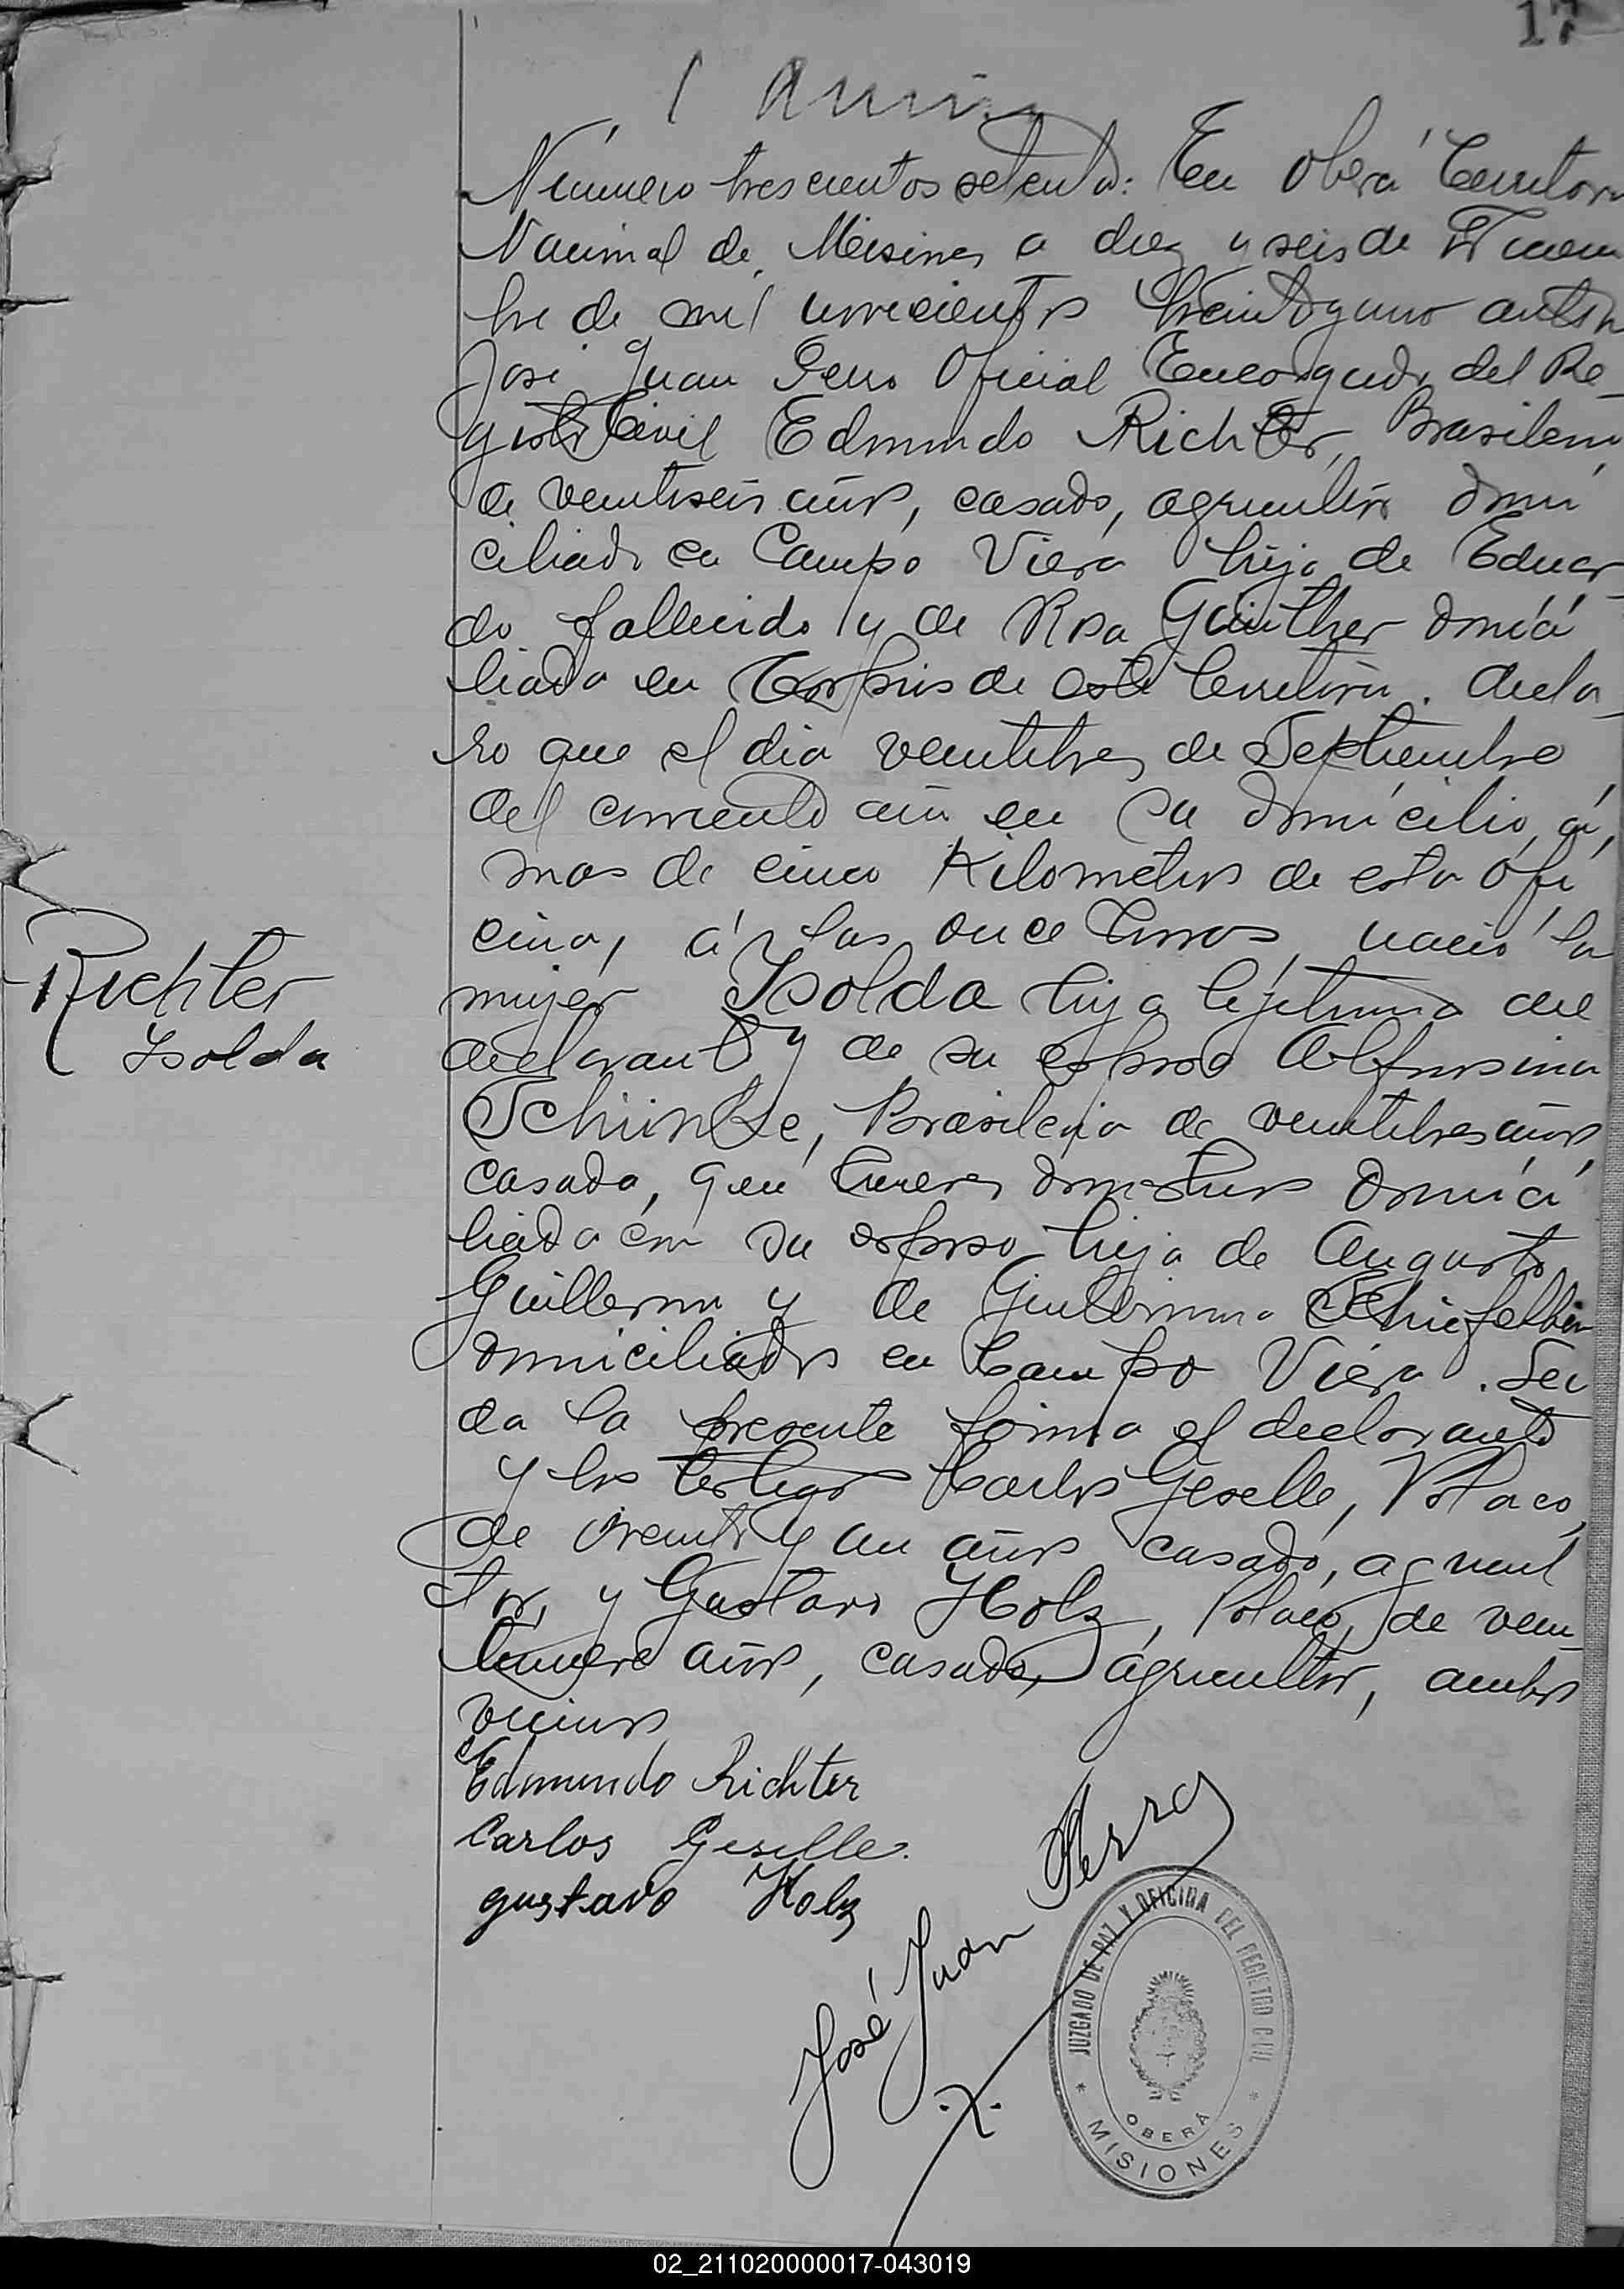 17
Número trescientos setenta: En Oberá Territorio
Nacional de Misiones a diez y seis de
bre de mil novecientos treinta y uno ante mi
José Juan Perro Oficial Encargado del Re-
gistro Civil Edmundo Richter, Brasileño
de veintiseis años, casado, agricultor domi
ciliado en Campo Viera hijo de Eduar-
do fallecido y de Rosa Günther domici
liada en Corpus de este territorio. decla-
ro que el dia veintitres de Septiembre
del corriente año en su domicilio, á
mas de cinco Kilometros de esta ofi
cina, á las once horas, nació la
mujer Isolda hija legítima del
declarante y de su esposa Alfonsina
Schünke, Brasileña de veintitres años,
casada, quehaceres domesticos domici
liada con su esposo hija de Augusto
Guillermo y de Guillermina
domiciliados en Campo Viera. Lei
da la presente firma el declarante
y los testigos Carlos Geselle, Polaco,
de treinta y un años casado, agricul
tor, y Gustavo Holz, Polaco, de vein-
tinueve años, casado, agricultor, ambos
vecinos
Richter
Isolda
Edmundo Richter
Carlos Geselle.
gustavo Holz
José Juan
JUZGADO DE PAZ Y OFICINA DEL REGISTRO CIVIL
OBERÁ
* MISIONES *
02_211020000017-043019